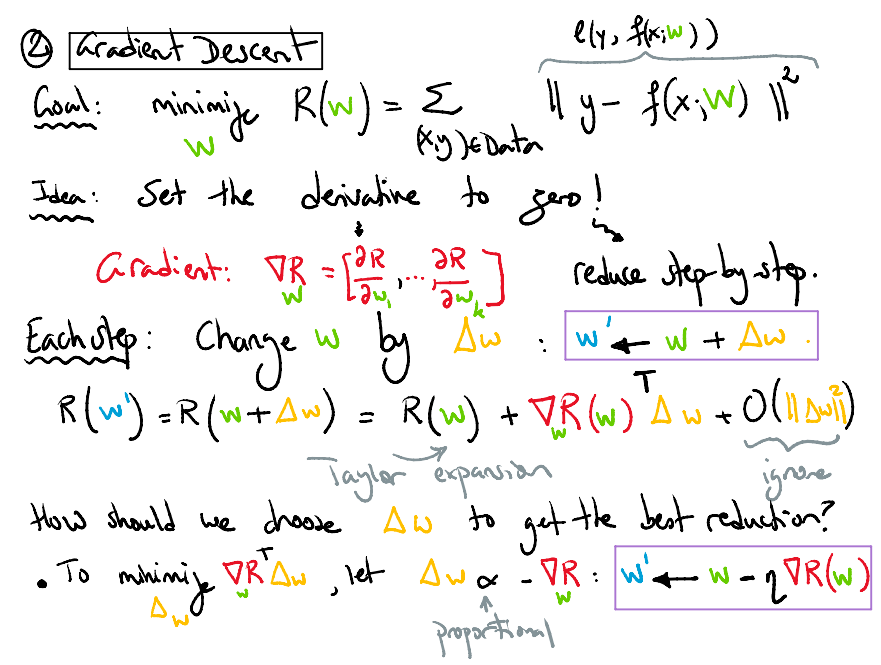 ② Gradient Descent
ℓ(y, f(x;w))
Goal: minimize R(w) = Σ || y - f(x;w) ||²
w (x,y)∈Data
Idea: Set the derivative to zero!
Gradient: ∇_w R = [∂R/∂w₁, ..., ∂R/∂w_k] reduce step-by-step.
Each step: Change w by Δw : w' ← w + Δw .
R(w') = R(w+Δw) = R(w) + ∇_w R(w)^T Δw + O(||Δw||²)
Taylor expansion ignore
How should we choose Δw to get the best reduction?
• To minimize ∇_w R^T Δw , let Δw ∝ - ∇_w R : w' ← w - η∇R(w)
Δw proportional